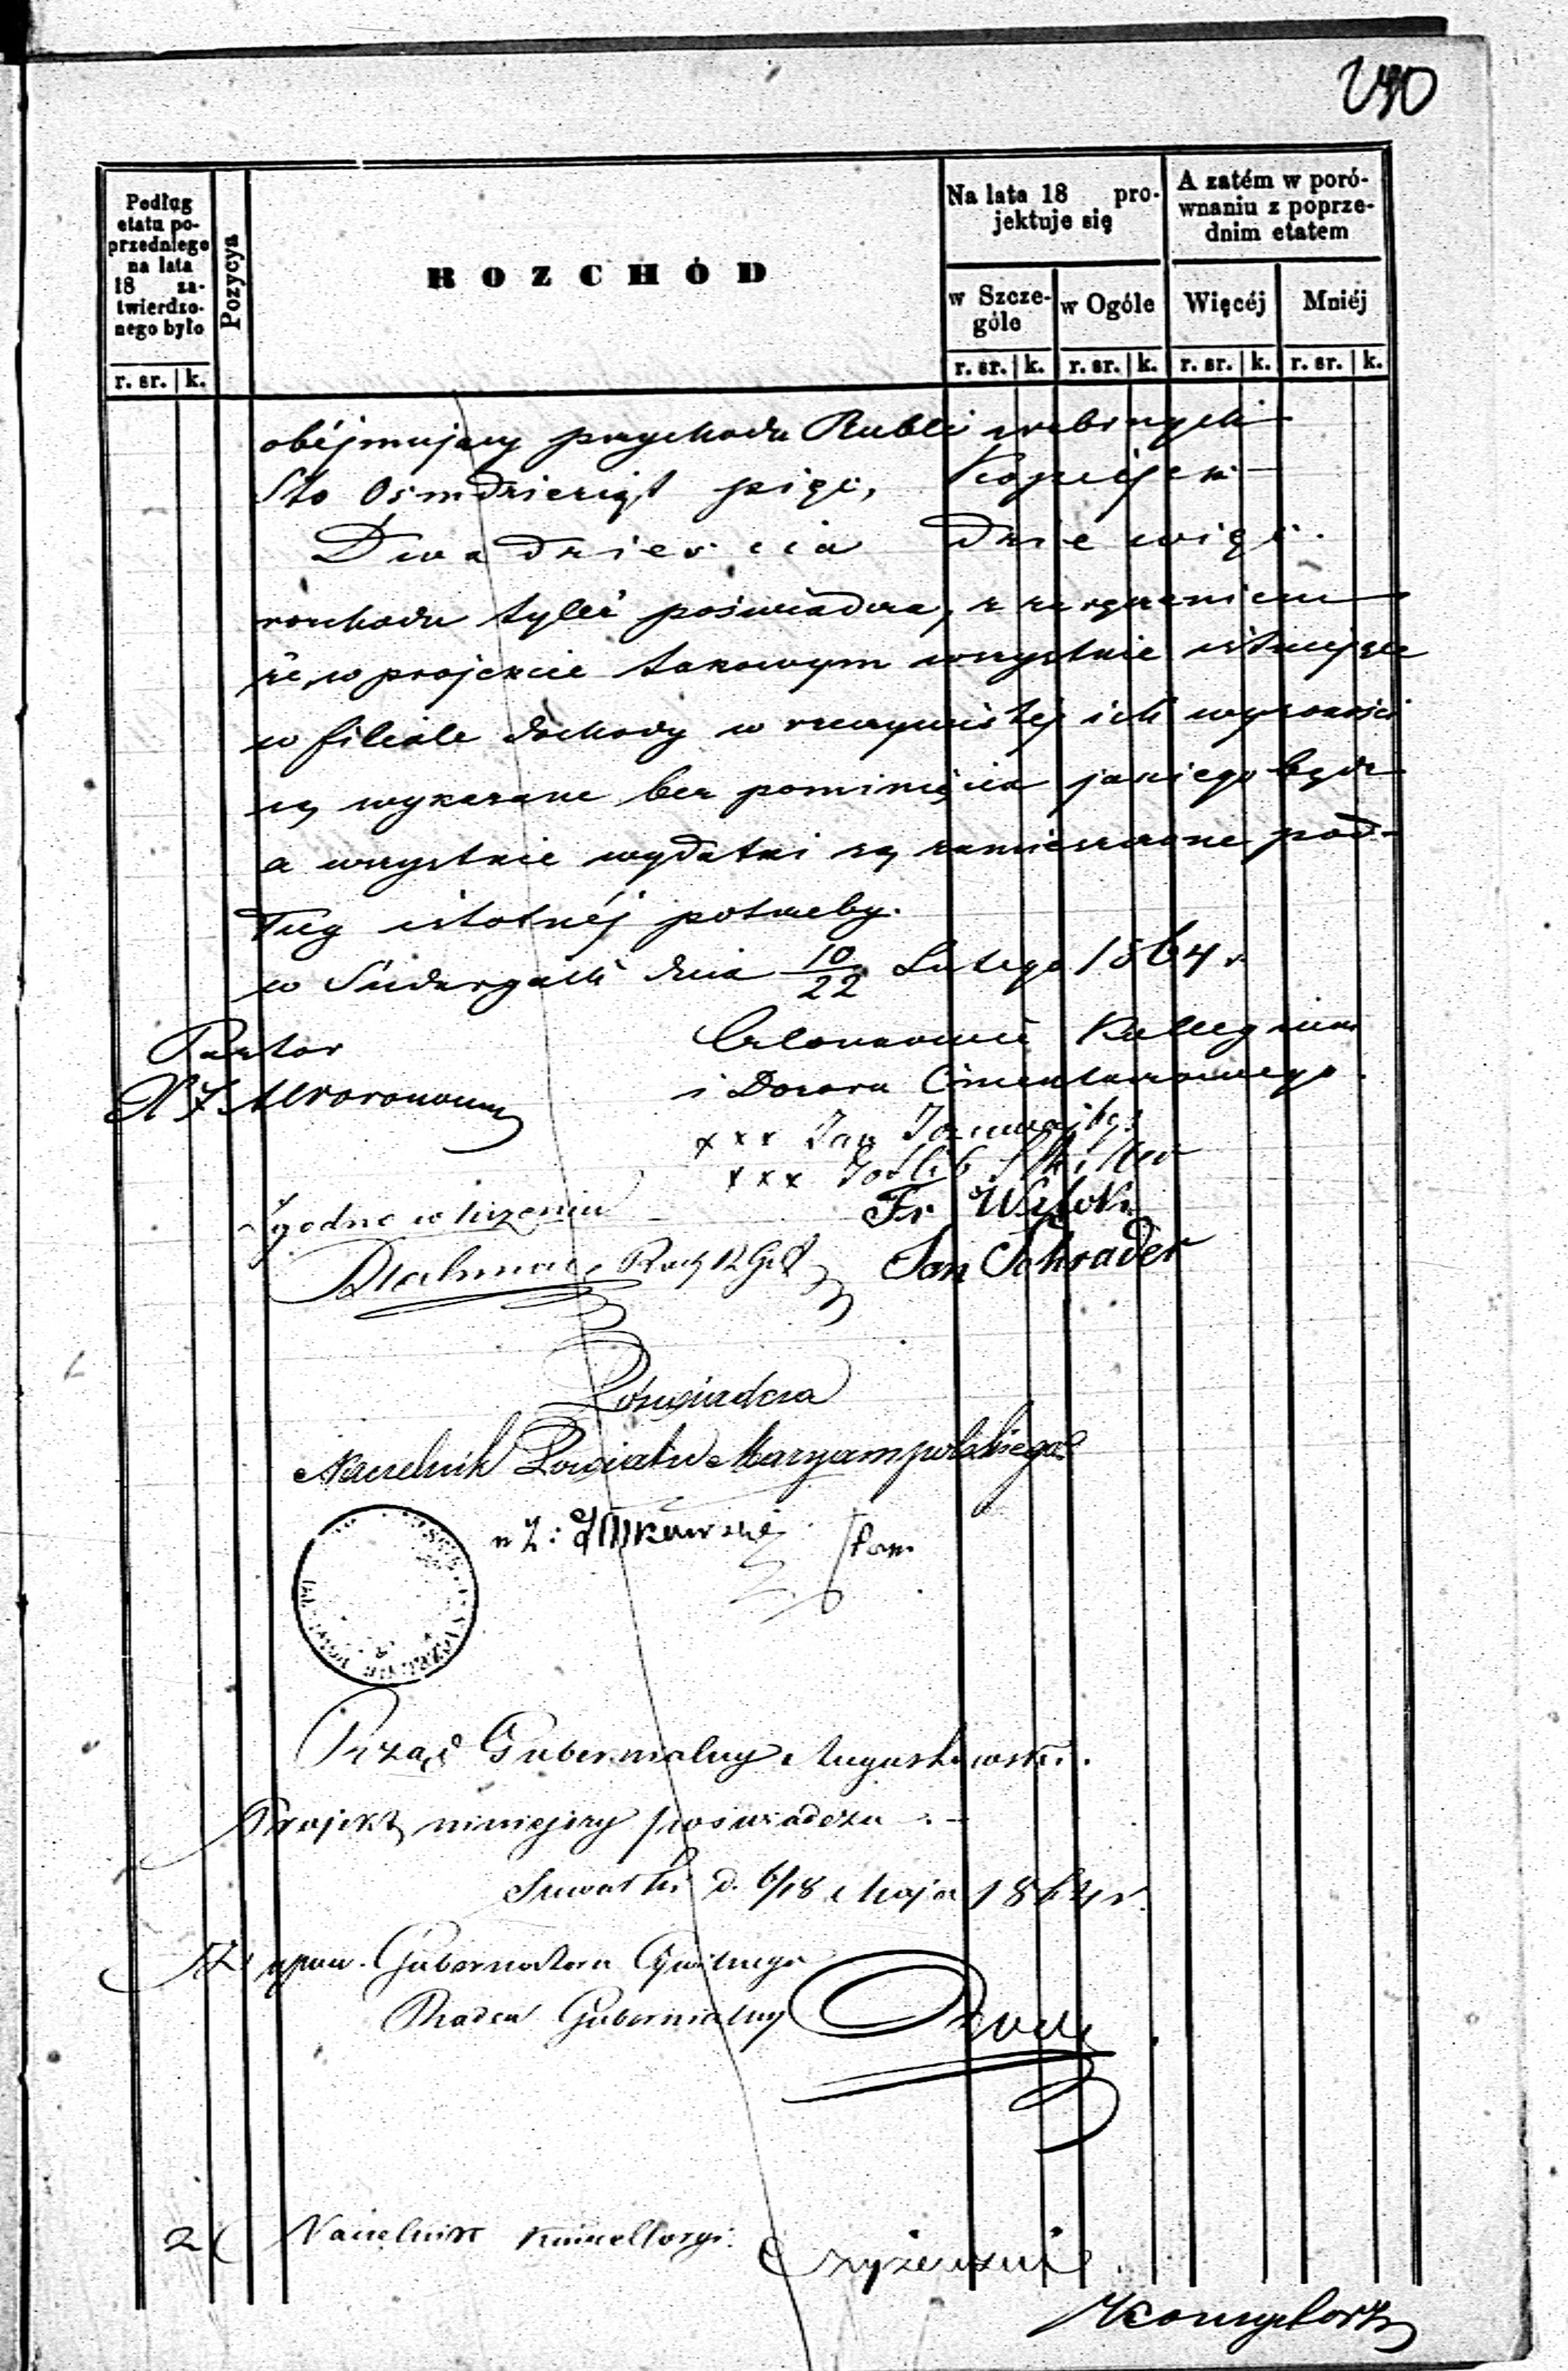 240
Podług etatu poprzedniego na lata 18 zatwierdzonego było
Pozycya
ROZCHÓD
Na lata 18 projektuje się
A zatém w porównaniu z poprzednim etatem
w Szczególe
w Ogóle
Więcéj
Mniéj
r. sr. k.
r. sr. k.
r. sr. k.
r. sr. k.
r. sr. k.
obéjmujący przychodu Rubli srebrnych
Sto Osmdziesiąt pięć, Kopiejek
Dwadzieścia dziewięć.
rozchodu tyleż poświadcza, z zaręczeniem
że w projekcie takowym wszystkie istniejące
w filiale dochody w rzeczywistéj ich wysokości
są wykazane bez pominięcia jakiego bądź
a wszystkie wydatki są zamieszczone pod-
ług istotnéj potrzeby.
w Sudargach dnia 10/22 Lutego 1864 r
Pastor
Członkowie Kollegium
i Dozoru Cmentarnego
xxx Jan
xxx Gotlib
Zgodne w liczeniu
Fr
Rach R Gub
Jan Schrader
Poświadcza
Naczelnik Powiatu Maryampolskiego
w Z:
Rząd Gubernialny Augustowski.
Projekt niniejszy poświadcza
Suwałki d. 6/18 Maja 1864 r.
Gubernatora Cywilnego
Radca Gubernialny
Naczelnik Kancellaryi